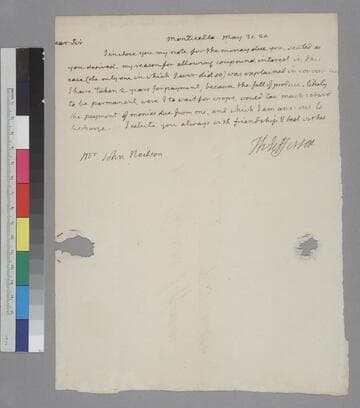 ear Sir
Monticello May 31. 20
I inclose you my note for the money due you, settled as
you desired. my reason for allowing compound interest in this
case (the only one in which I ever did so) was explained in
I have taken 2 years for payment, because the fall of produce, likely
to be permanent were I to wait for crops, would too much retard
the payment of monies due from me, and which I am anxious to
discharge. I salute you always with friendship & best wishes
Th: Jefferson
Mr John Neilson